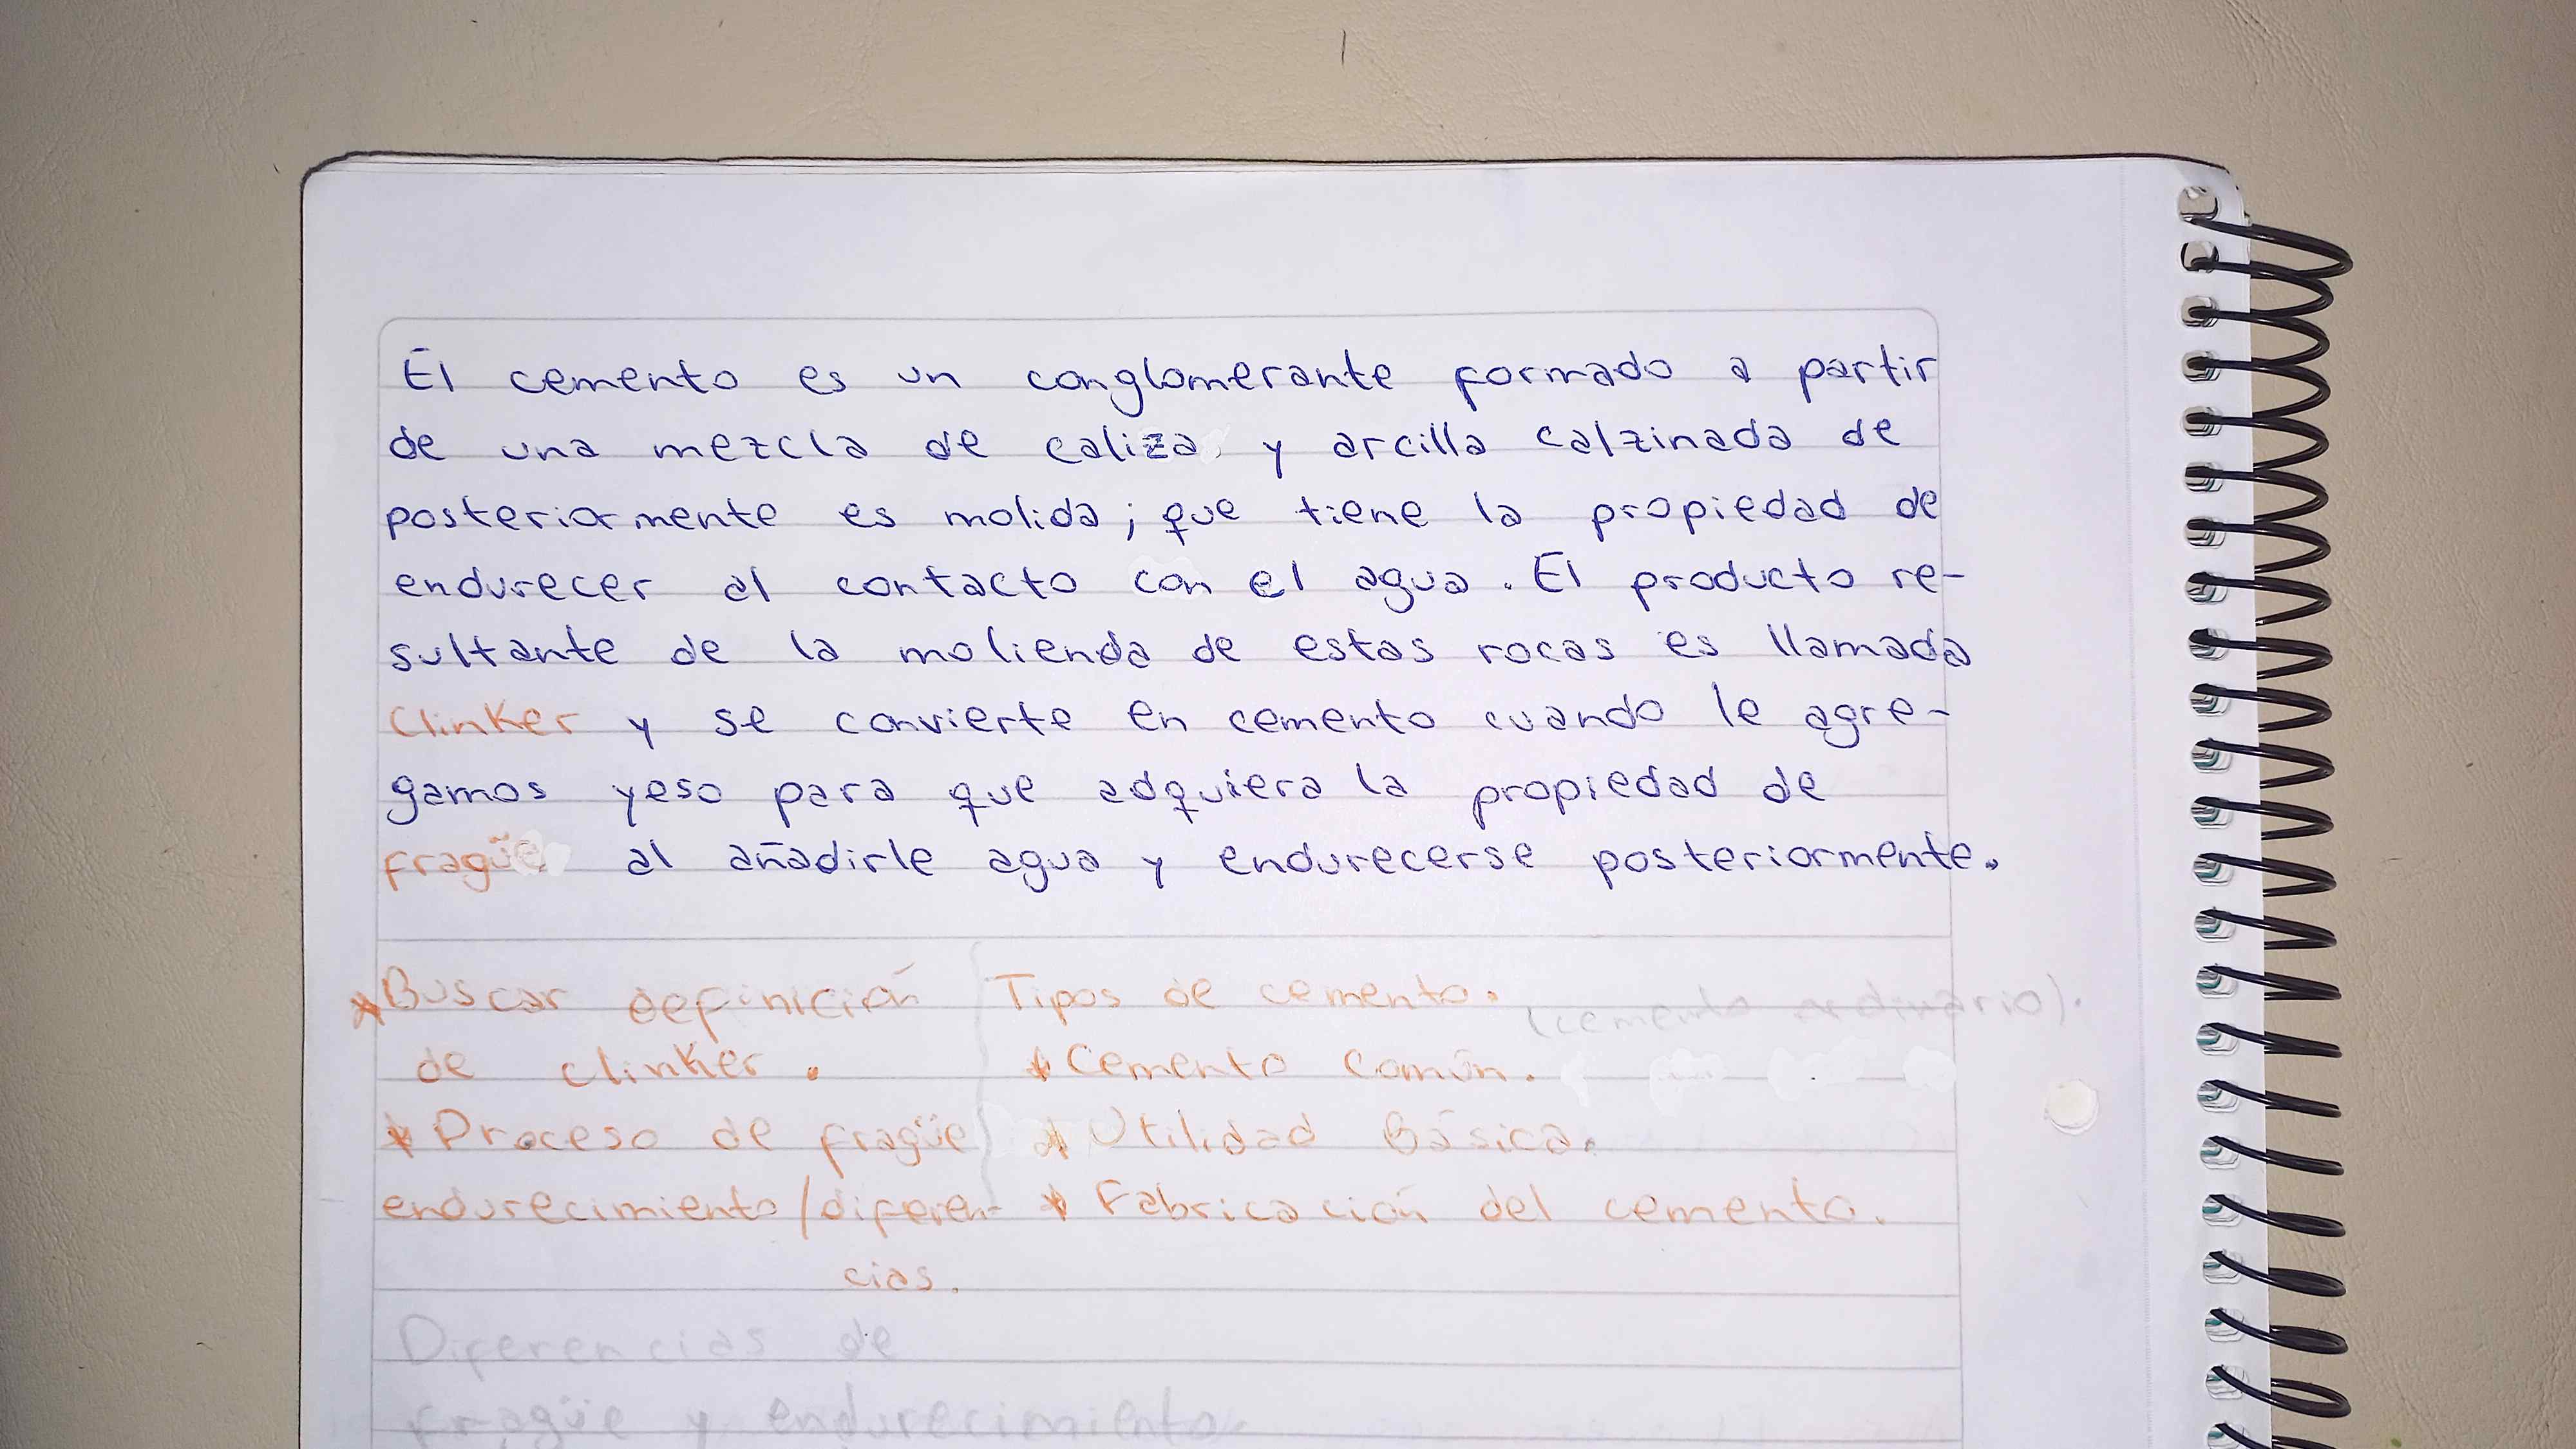 El cemento es un conglomerante formado a partir
de una mezcla de caliza y arcilla calzinada de
posteriormente es molida; que tiene la propiedad de
endurecer al contacto con el agua. El producto re-
sultante de la molienda de estas rocas es llamada
Clinker y se convierte en cemento cuando le agre-
gamos yeso para que adquiera la propiedad de
fragüe al añadirle agua y endurecerse posteriormente.
* Buscar definición
de clinker.
* Proceso de fragüe
endurecimiento/diferen-
cias.
Tipos de cemento.
(cemento ordinario).
* Cemento común.
* Utilidad Básica.
* Fabricación del cemento.
Diferencias de
fragüe y endurecimiento.